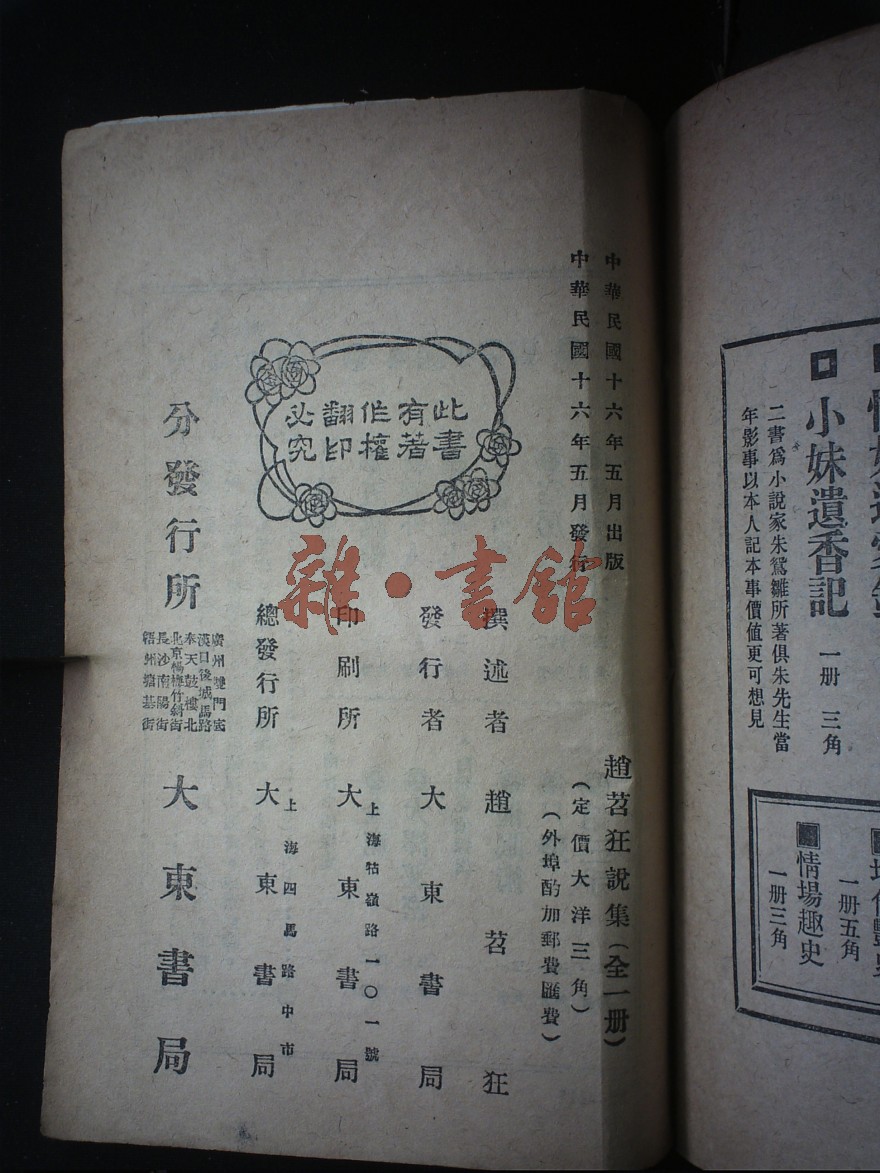 小妹遺香記
一册 三角
二書爲小說家朱鴛雛所著俱朱先生當
年影事以本人記本事價值更可想見
一册五角
情場趣史
一册三角
中華民國十六年五月出版
中華民國十六年五月發行
趙苕狂說集(全一册)
(定價大洋三角)
(外埠酌加郵費匯費)
此書
有著
作權
翻印
必究
撰述者 趙苕狂
發行者 大東書局
印刷所 上海牯嶺路一〇一號 大東書局
總發行所 上海四馬路中市 大東書局
分發行所
廣州雙門底
漢口後城馬路
奉天鼓樓北
北京楊梅竹斜街
長沙南陽街
梧州塘基街
大東書局
雜·書館